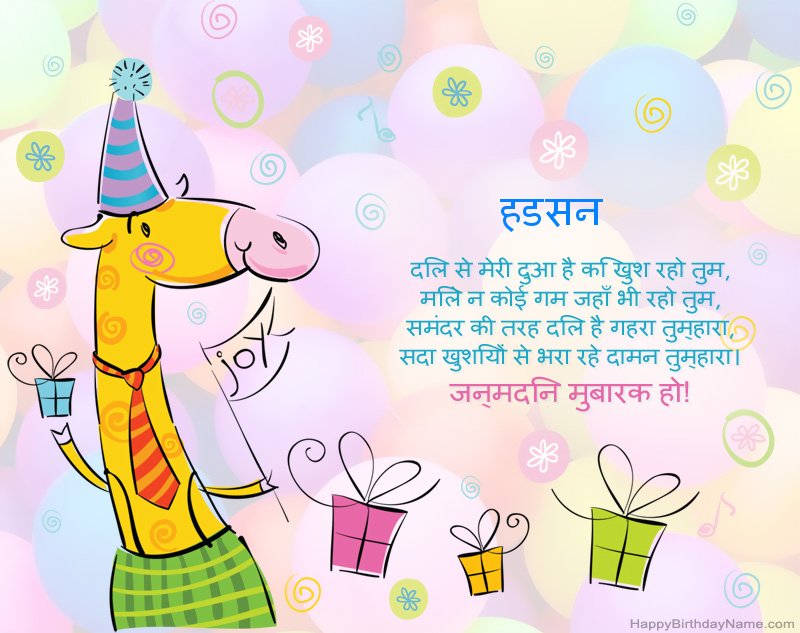 हडसन
दिल से मेरी दुआ है कि खुश रहो तुम,
मिले न कोई गम जहाँ भी रहो तुम,
समंदर की तरह दिल है गहरा तुम्हारा,
सदा खुशियों से भरा रहे दामन तुम्हारा।
जन्मदिन मुबारक हो!
joy
HappyBirthdayName.com